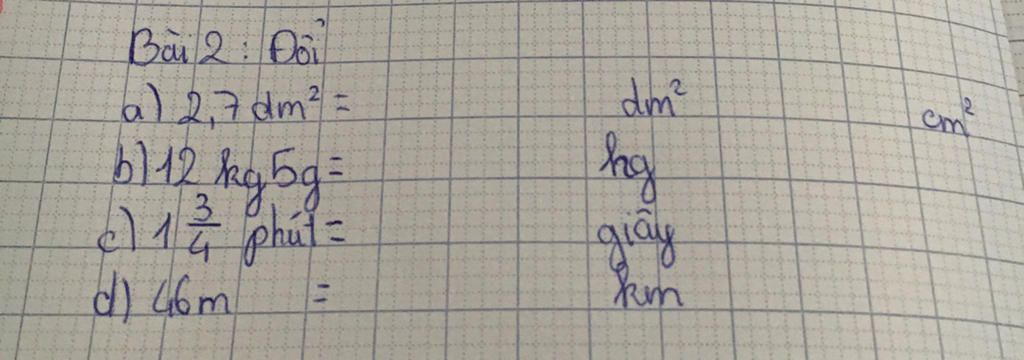 Bài 2 : Đổi
a) 2,7 dm² = dm² cm²
b) 12 kg 5g = kg
c) 1 3/4 phút = giây
d) 46m = km